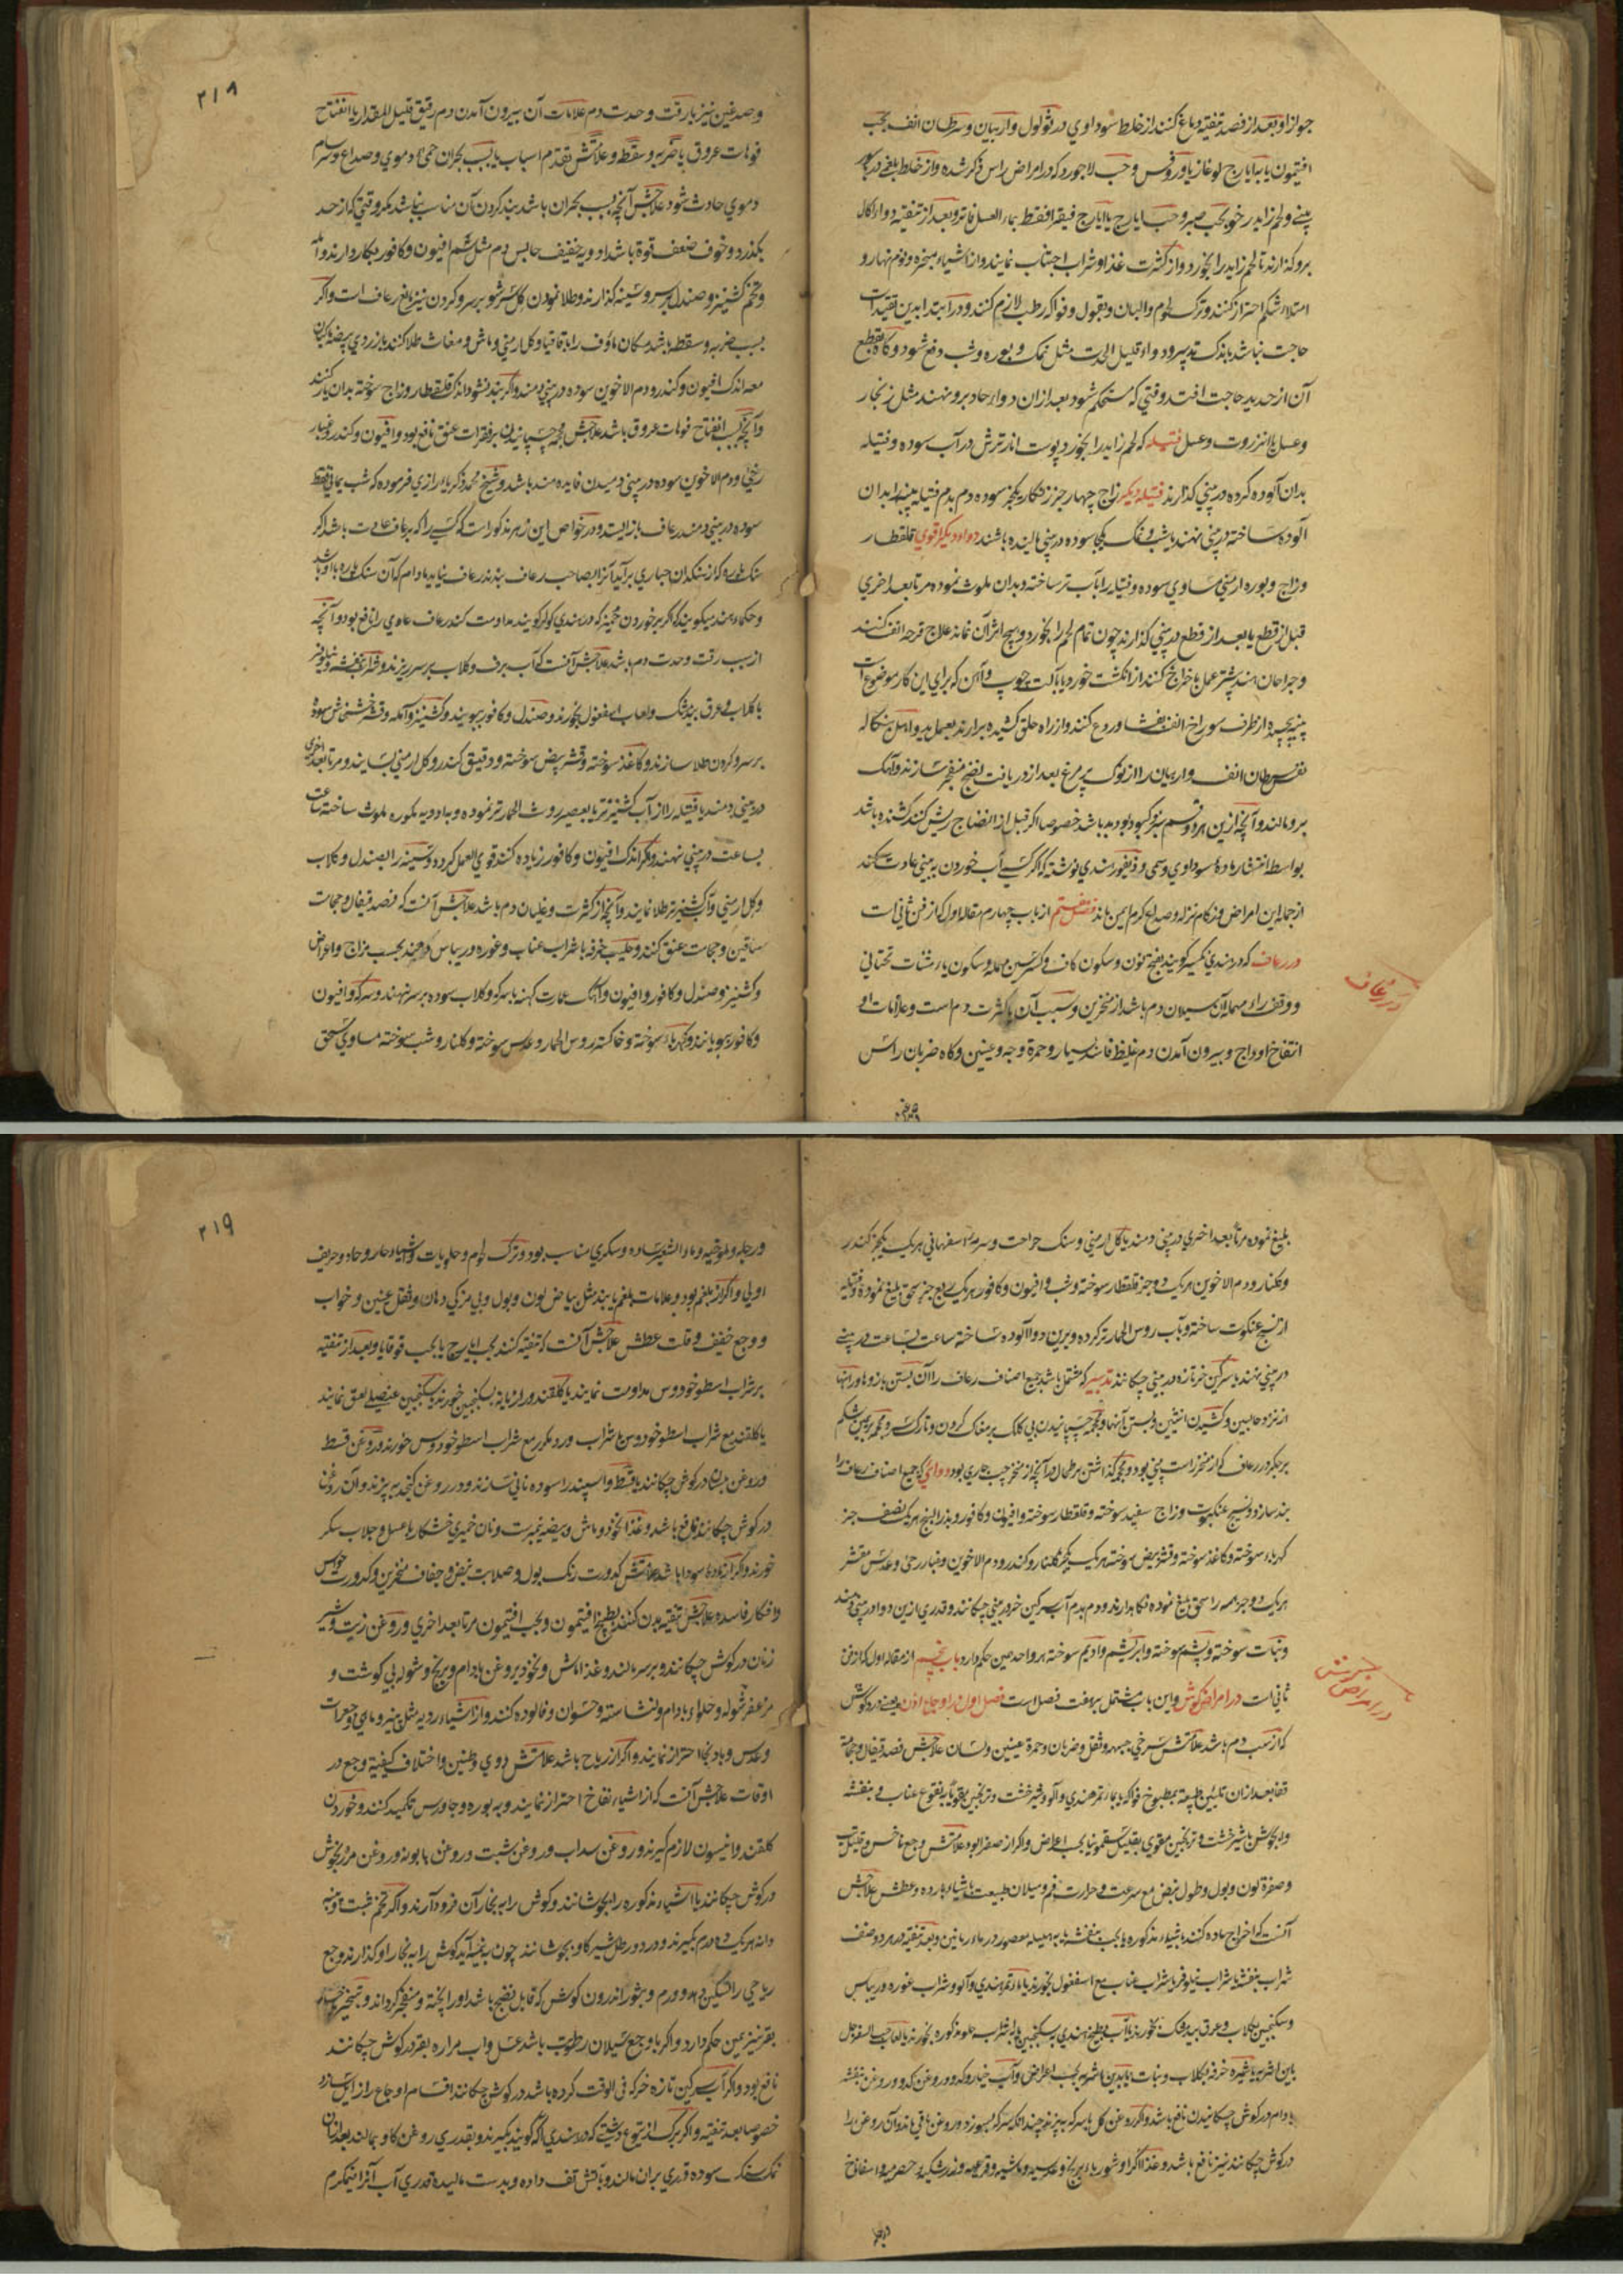 جواز او بعد از فصد تنفیه دماغ کنند از خلط سوداوي در ثولول و اربیان و سرطان انف بحب
افتیمون یا بایارج لوغازیا و روفس و حب لاجورد که در امراض راس ذکر شده و از خلط بلغمی در
بینی و لحم زاید در خو بحب صبر و حب ایارج یا ایارج فیقرا فقط بماء العسل فاتر و بعد از تنقیه دواء اکال
برو گذارند تا لحم زاید را بخورد و از کثرت غذا و شراب اجتناب نمایند و از اشیاء مبخره و نوم نهار و
امتلاء شکم احتراز کنند و ترک لحوم و البان و بقول و فواکه رطب لازم کنند و در ابتدا بدین تقیدات
حاجت نباشد باندک تدبیر و دواء قلیل الحدت مثل نمک و بوره و شب دفع شود و گاه بقطع
آن از حدید حاجت افتد وقتي که مستحکم شود بعد از ان دواء حاد برو نهند مثل زنجار
و عسل یا انزروت و عسل فتیله که لحم زاید را بخورد پوست انار ترش در آب سوده و فتیله
بدان آلوده کرده در بینی گذارند فتیله دیگر زاج چهار جزء زنگار یکجزء سوده دم بدم فتیله پنبه بدان
آلوده ساخته در بینی نهند یا شب و نمک یکجا سوده در بینی مالیده باشند دواء دیگر قوي قلقطار
و زاج و بوره ارمنی مساوي سوده و فتیله را بآب تر ساخته و بدان ملوث نموده مرتا بعد اخري
قبل از قطع یا بعد از قطع در بینی گذارند چون تمام لحم را بخورد و هیچ اثر آن نماند علاج قرحه انف کنند
و جراحان هند پشتر عمل باخراج کنند از انکشت خورد یا بآلت چوب و آهن که براي این کار موضوع است
پنبه پیچیده از طرف سوراخ انف بفشا و روع کنند و از راه حلق کشیده برارند بعمل ید و اهل بنکاله
سرطان انف و اربیان را از نوک پر مرغ بعد از دریافت نضج منفجر سازند و آهک
برو مالند و آنچه ازین هر دو قسم سبز و کبود بود بد باشد خصوصا اکر قبل از انضاج ریش کنند کشنده باشد
بواسطه انتشار ماده سوداوي و سمی و ذیفور هندی نوشته که اکر کسی آب خوردن به بینی عادت کند
از جمله این امراض و زکام و نزله و صداع کرم ایمن ماند فصل هشتم از باب چهارم مقاله اول که از فن ثانی است
در رعاف که در هندي نکسیر گویند بفتح نون و سکون کاف و کسر سین مهمله و سکون یاء مثنات تحتانی
و وقف راء مهمله آن سیلان دم باشد از منخرین و سبب آن یا کثرت دم است و علامات او
انتفاخ اوداج و بیرون آمدن دم غلیظ فاسد بسیار و حمرة وجه و عینین و گاه ضربان راس
در رعاف
وصدغین
٢١٨
وصدغین نیز یا رقت و حدت دم علامات آن بیرون آمدن دم رقیق قلیل المقدار یا انفتاح
فوهات عروق یا ضربه و سقطه و علامتش تقدم اسباب یا بسبب بحران حمی حاد دموي و صداع و سرسام
دموي حادث شود علاجش آنچه بسبب بحران باشد بند کردن آن مناسب نباشد مکر وقتي که از حد
بکذرد و خوف ضعف قوة باشد ادویه خفیف حابس دم مثل شم افیون و کافور بکار دارند و آمله
و تخم کشنیز و صندل بر سر و سینه گذارند و طلا نمودن گل سرشو بر سر و کردن نیز مانع رعاف است و اکر
بسبب ضربه و سقطه باشد مکان ماؤف را باقاقیا و گل ارمنی و ماش و مغاث طلا کنند بازردي بیضه ماکیان
معه اندک افیون و کندر و دم الاخوین سوده در بینی دمند و اکر بند نشود اندک قلقطار و زاج سوخته بدان یار کنند
و آنچه بسبب انفتاح فوهات عروق باشد علاجش محجمه چسپانیدن بر فقرات عنق نافع بود و افیون و کندر و غبار
رحی و دم الاخوین سوده در بینی دمیدن فایده مند باشد و شیخ محمد زکریاء رازي فرموده که شب یمانی فقط
سوده در بینی دمند رعاف باز ایستد و در خواص این زهر مذکور است که کسی را که برعاف عادت باشد اکر
سنک بلوره که از سنکدان حباري برآید آنرا بصاحب رعاف بندند رعاف نیاید مادام که آن سنک بلوره با او باشد
و حکماء هند میکویند که اگر بر خوردن جمیز که در هندي کولر گویند مداومت کند رعاف عادي را نافع بود و آنچه
از سبب رقت و حدت دم باشد علاجش آنست که آب برف و گلاب بر سر ریزند و شراب بنفشه و نیلوفر
با گلاب و عرق بیدمشک و لعاب اسفغول بخورند و صندل و کافور ببویند و کشنیز و آمله و قشر خشخاش سوده
بر سر و کردن طلا سازند و کاغذ سوخته و قشر بیض سوخته و دقیق کندر و گل ارمنی بسایند و مرتا بعد اخري
در بینی دمند یا فتیله را از آب کشنیز تر یا بعصیر روث الحمار تر نموده و بدان ادویه مذکوره ملوث ساخته ساعت
بساعت در بینی نهند و مکر اندک افیون و کافور زیاده کنند قوي العمل کردد و سینه را بصندل و گلاب
و گل ارمنی و آب کشنیز تر طلا نمایند و آنچه از کثرت و غلیان دم باشد علاجش آنست که فصد قیفال و حجامت
ساقین و حجامت عنق کنند و حلیب خرفه با شراب عناب و غوره و ریباس دهند بحسب مزاج و اعراض
و کشنیز و صندل و کافور و افیون و آهک عمارت کهنه با سرکه و گلاب سوده بر سر نهند و سرکه و افیون
و کافور ببویانند و کهرباء سوخته و خاکسته روس الحمار و عدس سوخته و گلنار و شب سوخته مساوي سحق
بلیغ نموده مرتا بعد اخري در بینی دمند یا گل ارمنی و سنک جراحت و سرمه اسفهانی هر یک یکجزء کندر
و گلنار و دم الاخوین هر یک دو جزء قلقطار سوخته و شب و افیون و کافور هر یک ربع جزء سحق بلیغ نموده و فتیله
از نسج عنکبوت ساخته و بآب روس الحمار تر کرده و برین دوا آلوده ساخته ساعت بساعت در بینی
در بینی نهند یا سرگین خر تازه در بینی چکانند تدبیر که مشتمل باشد جمیع اصناف رعاف را آن بستن بازوها و رانها
از نزد حالبین و کشیدن انثیین و بستن آنها و محجمه چسپانیدن بی کلک بر مغاک کردن و تارک سر و محجمه بر یمین شکم
بر جکر در رعاف که از منخر راست بینی بود و محجمه گذاشتن بر طحال در آنچه از منخر چپ جاري بود دوائي که جمیع اصناف رعاف را
بند سازد و نسیج عنکبوت و زاج سفید سوخته و قلقطار سوخته و افیون و کافور و بذر البنج هر یک نصف جزء
کهرباء سوخته و کاغذ سوخته و قشر بیض سوخته هر یک یکجزء گلنار و کندر و دم الاخوین و غبار رحی و عدس مقشر
هر یک دو جزء همه را سحق بلیغ نموده نکاهدارند و دم بدم آب سرگین خر در بینی چکانند و قدري ازین دوا در بینی دمند
و نبات سوخته و پشم سوخته و ابریشم و ادیم سوخته هر واحد همین حکم دارد باب پنجم از مقاله اول که از فن
ثانی است در امراض گوش و این باب مشتمل بر هفت فصل است فصل اول در اوجاع اذن یعنی درد گوش
که از سبب دم باشد علامتش سرخي جبهه و ثقل و ضربان و حمرة عینین و لسان علاجش فصد قیفال و حجامة
قفا بعد از ان تلیین طبیعة بمطبوخ فواکه یا بماء تمر هندي و آلو و شیرخشت و ترنجبین بقویه یا بنقوع عناب و بنفشه
و صفرة لون و بول و طول نبض مع سرعت و حرارت فم و میلان طبیعت باشیاء بارده و عطش علاجش
آنست که اخراج ماده کنند باشیاء مذکوره یا بحب بنفشه یا بهلیله معصور در ماء رمانین و بعد تنقیه در هر دو صنف
شراب بنفشه یا شراب نیلوفر یا شراب عناب مع اسفغول بخورند یا ماء تمر هندي و آلو و شراب غوره و ریباس
بادام در گوش چکانیدن نافع باشد و اکر روغن گل با سرکه بپزند چندانکه سرکه بسوزد و روغن باقی ماند و آن روغن را
در گوش چکانند نیز نافع باشد و غذا اکرا و شورباء برنج و عدسیه و ماشیه و قرعیه و زرشکیه و حصرمیه و اسفاناخ
در امراض گوش
٢١٩
و رجله و ملوخیه و ماء الشعیر ساده و سکري مناسب بود و ترک لحوم و حلویات و اشیاء حار و حاد و حریف
اولي و اکر از بلغم بود و علامات بلغم یابند مثل بیاض لون و بول و بی مزکي دهان و ثقل عینین و خواب
و وجع خفیف و قلت عطش علاجش آنست که تنقیه کنند بحب ایارج یا بحب قوقایا و بعد از تنقیه
بر شراب اسطوخودوس مداومت نمایند یا گلقند و رازیانه بسکنجبین خورند یا سکنجبین عنصلی لعق نمایند
یا گلقند مع شراب اسطوخودوس یا شراب ورد مکرر مع شراب اسطوخودوس خورند و روغن قسط
و روغن بان در گوش چکانند یا قسط و اسپند را سوده نانی سازند و در روغن کنجد بپزند و آن روغن
در گوش چکانند نافع باشد و غذا نخود و ماش و بیضه نیمبرشت و نان خمیري خشکار با عسل و جلاب سکر
خورند و اکر از ماده سودا باشد علامتش کدورت رنک بول و صلابت نبض و جفاف منخرین و کدورت حواس
و افکار فاسده علاجش تنقیه بدن کنند بطبیخ افتیمون و بحب افتیمون مرتا بعد اخري و روغن زیت و شیر
زنان در گوش چکانند و بر سر مالند و غذا ماش و نخود بروغن بادام و برنج و شوله بی گوشت و
مزعفر شوله و حلواء بادام و نشاسته و حسوان و فالوده کنند و از اشیاء ردیه مثل پنیر و ماهي و حبوبات
و عدس و بادنجان احتراز نمایند و اکر از ریاح باشد علامتش دوي و طنین و اختلاف کیفیة وجع در
اوقات علاجش آنست که از اشیاء نفاخ احتراز نمایند و به بوره و جاورس تکمید کنند و خوردن
گلقند و انیسون لازم گیرند و روغن سداب و روغن شبت و روغن بابونه و روغن مرزنجوش
در گوش چکانند یا اشیاء مذکوره را بجوشانند و گوش را به بخار آن فرود آرند و اکر تخم شبت و پنبه
دانه هر یک ده درم بگیرند و در دو رطل شیر گاو بجوشانند چون به نیمه آید گوش را به بخار او گذارند وجع
ریاحي را تسکین دهد و ورم و بثور اندرون گوش که قابل نضج باشد اورا پخته و منفجر کرداند و تبخیر
بقر نیز همین حکم دارد و اکر با وجع سیلان رطوبت باشد عسل و آب مراره بقر در گوش چکانند
نافع بود و اکر آب سرگین تازه خر که فی الوقت کرده باشد در گوش چکانند اقسام اوجاع را زایل سازد
خصوصا بعد تنقیه و اکر برک از یتوع دشتي که در هندي آکه گویند بگیرند و بقدري روغن گاو بمالند بعد ازان
نمک سنک سوده قدري بران مالند و بآتش تف داده و بدست مالیده قدري آب آنرا نیمگرم